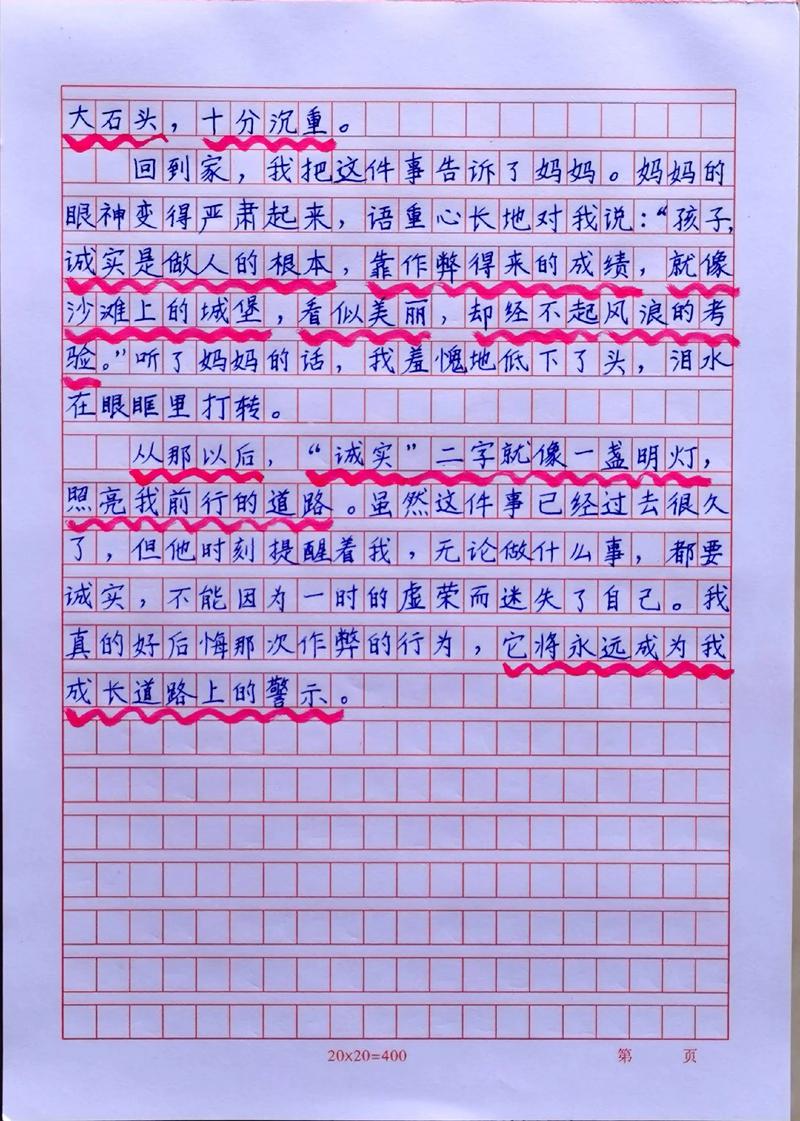 大石头，十分沉重。
回到家，我把这件事告诉了妈妈。妈妈的
眼神变得严肃起来，语重心长地对我说：“孩子，
诚实是做人的根本，靠作弊得来的成绩，就像
沙滩上的城堡，看似美丽，却经不起风浪的考
验。”听了妈妈的话，我羞愧地低下了头，泪水
在眼眶里打转。
从那以后，“诚实”二字就像一盏明灯，
照亮我前行的道路。虽然这件事已经过去很久
了，但他时刻提醒着我，无论做什么事，都要
诚实，不能因为一时的虚荣而迷失了自己。我
真的好后悔那次作弊的行为，它将永远成为我
成长道路上的警示。
20×20=400
第 页